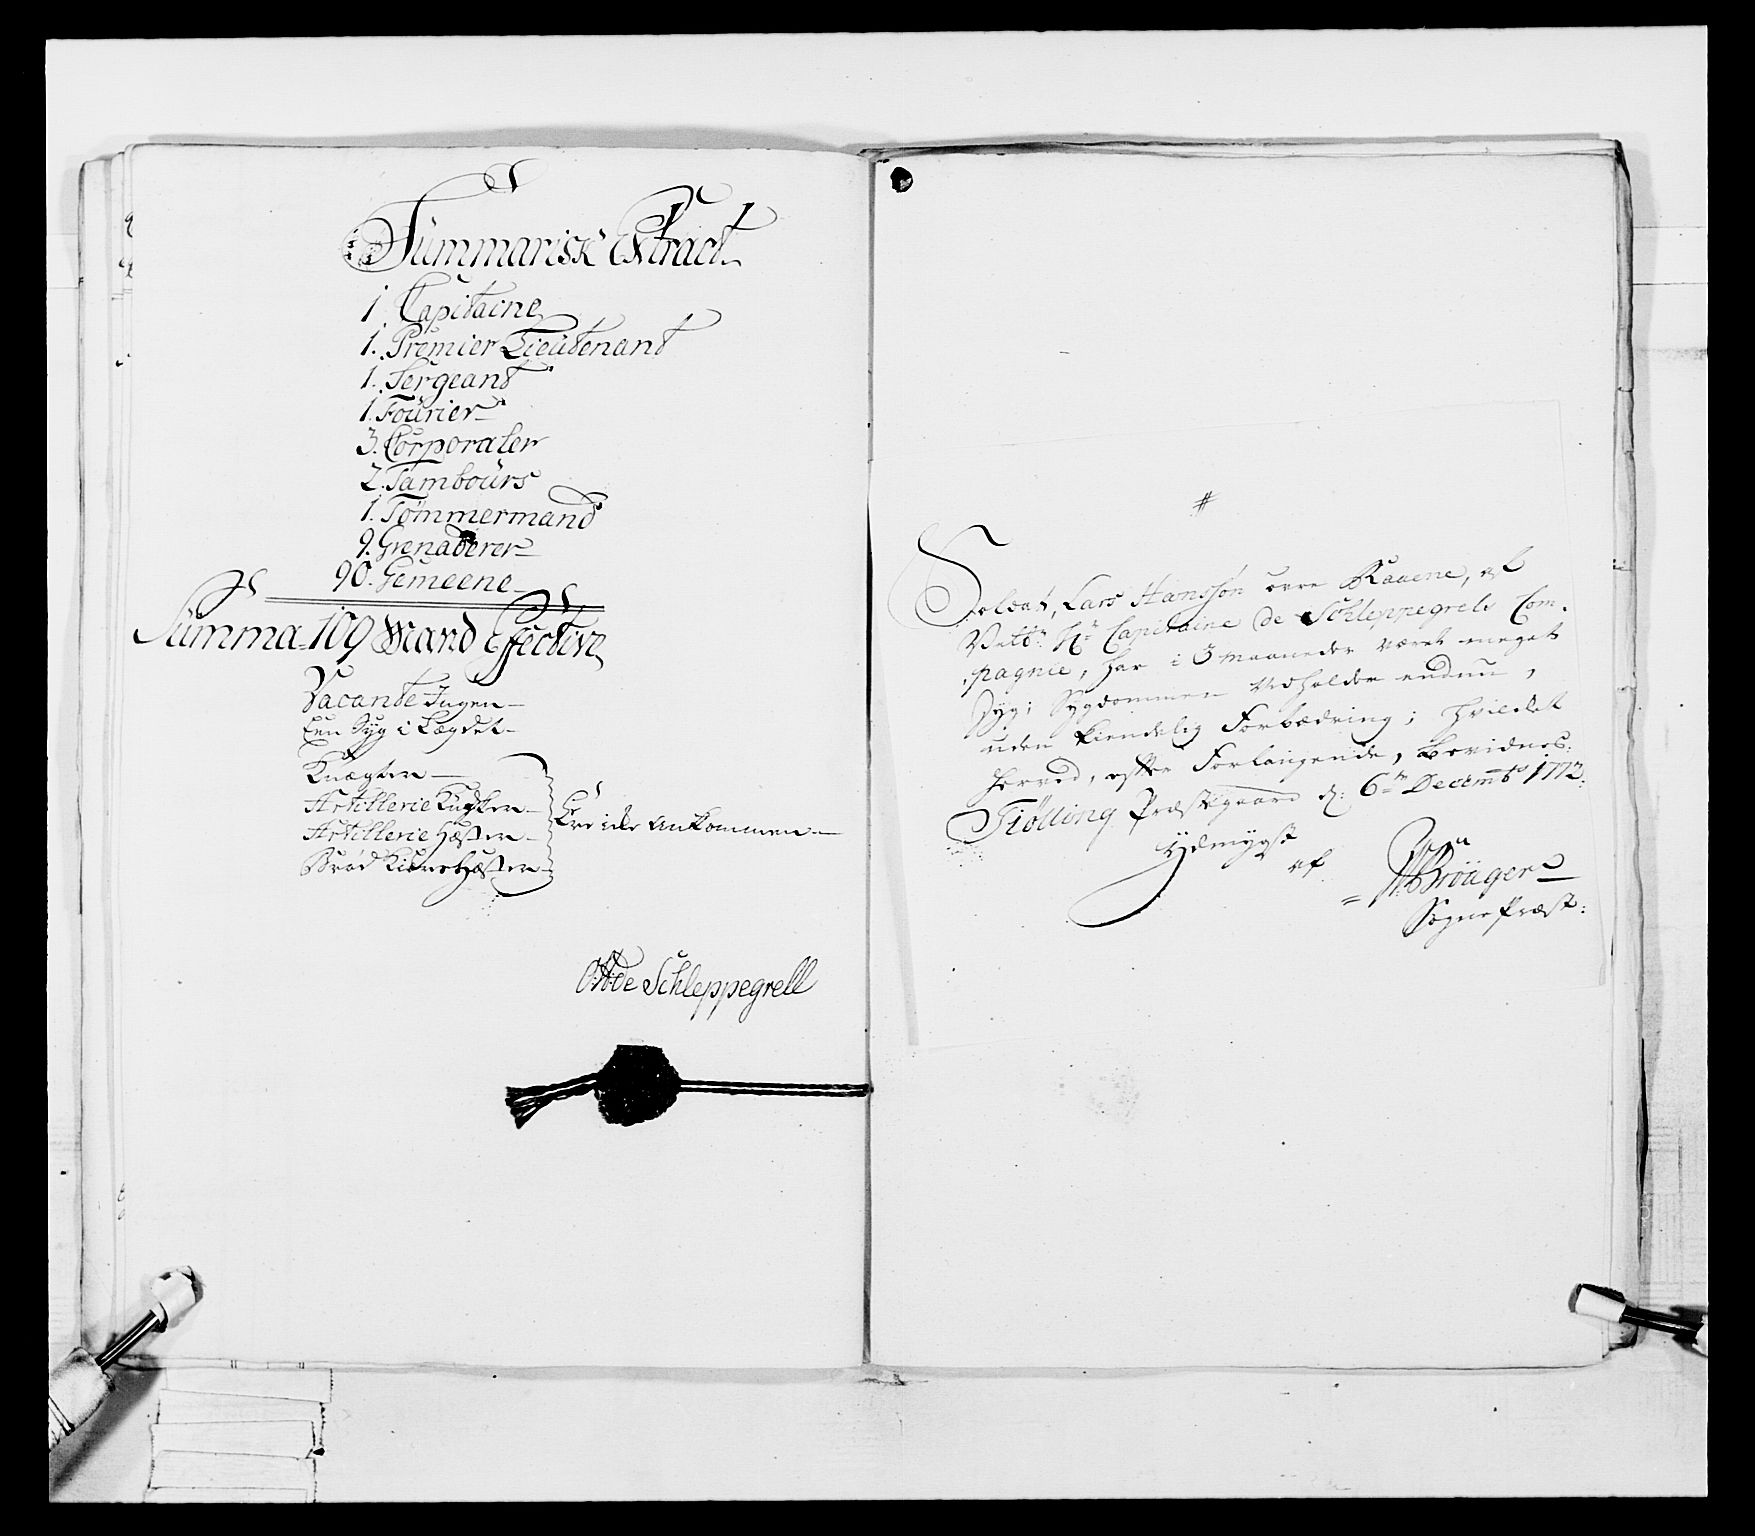 Summarisk Extract
1 Capitaine
1. Premier Lieutenant
1. Sergeant
1. Fourier
3. Corporaler
2. Tambours
1. Tømmermand
9. Grenaderer
90. Gemeene
Summa 109 Mand Effective
Vacante Ingen
Een Syg i Lægdet
Knægten
Artillerie Kudsken
Artillerie Hæsten
Brød Kierre Hæsten
Ere icke Ankommen
Otto de Schleppegrell
#
Soldat, Lars Hansøn Raaene, af
Velb: Hr Capitaine de Schleppegrels Com-
pagnie, har i 3 maaneder været meget
Syg; Sygdommen Vedholder endnu,
uden kiendelig Forbædring; hvilcket
herved, efter Forlangende, bevidnes.
Tiølling Præstegaard d: 6te Decembr 1772.
Ydmygst
af
Brönger
Sogne Præst: